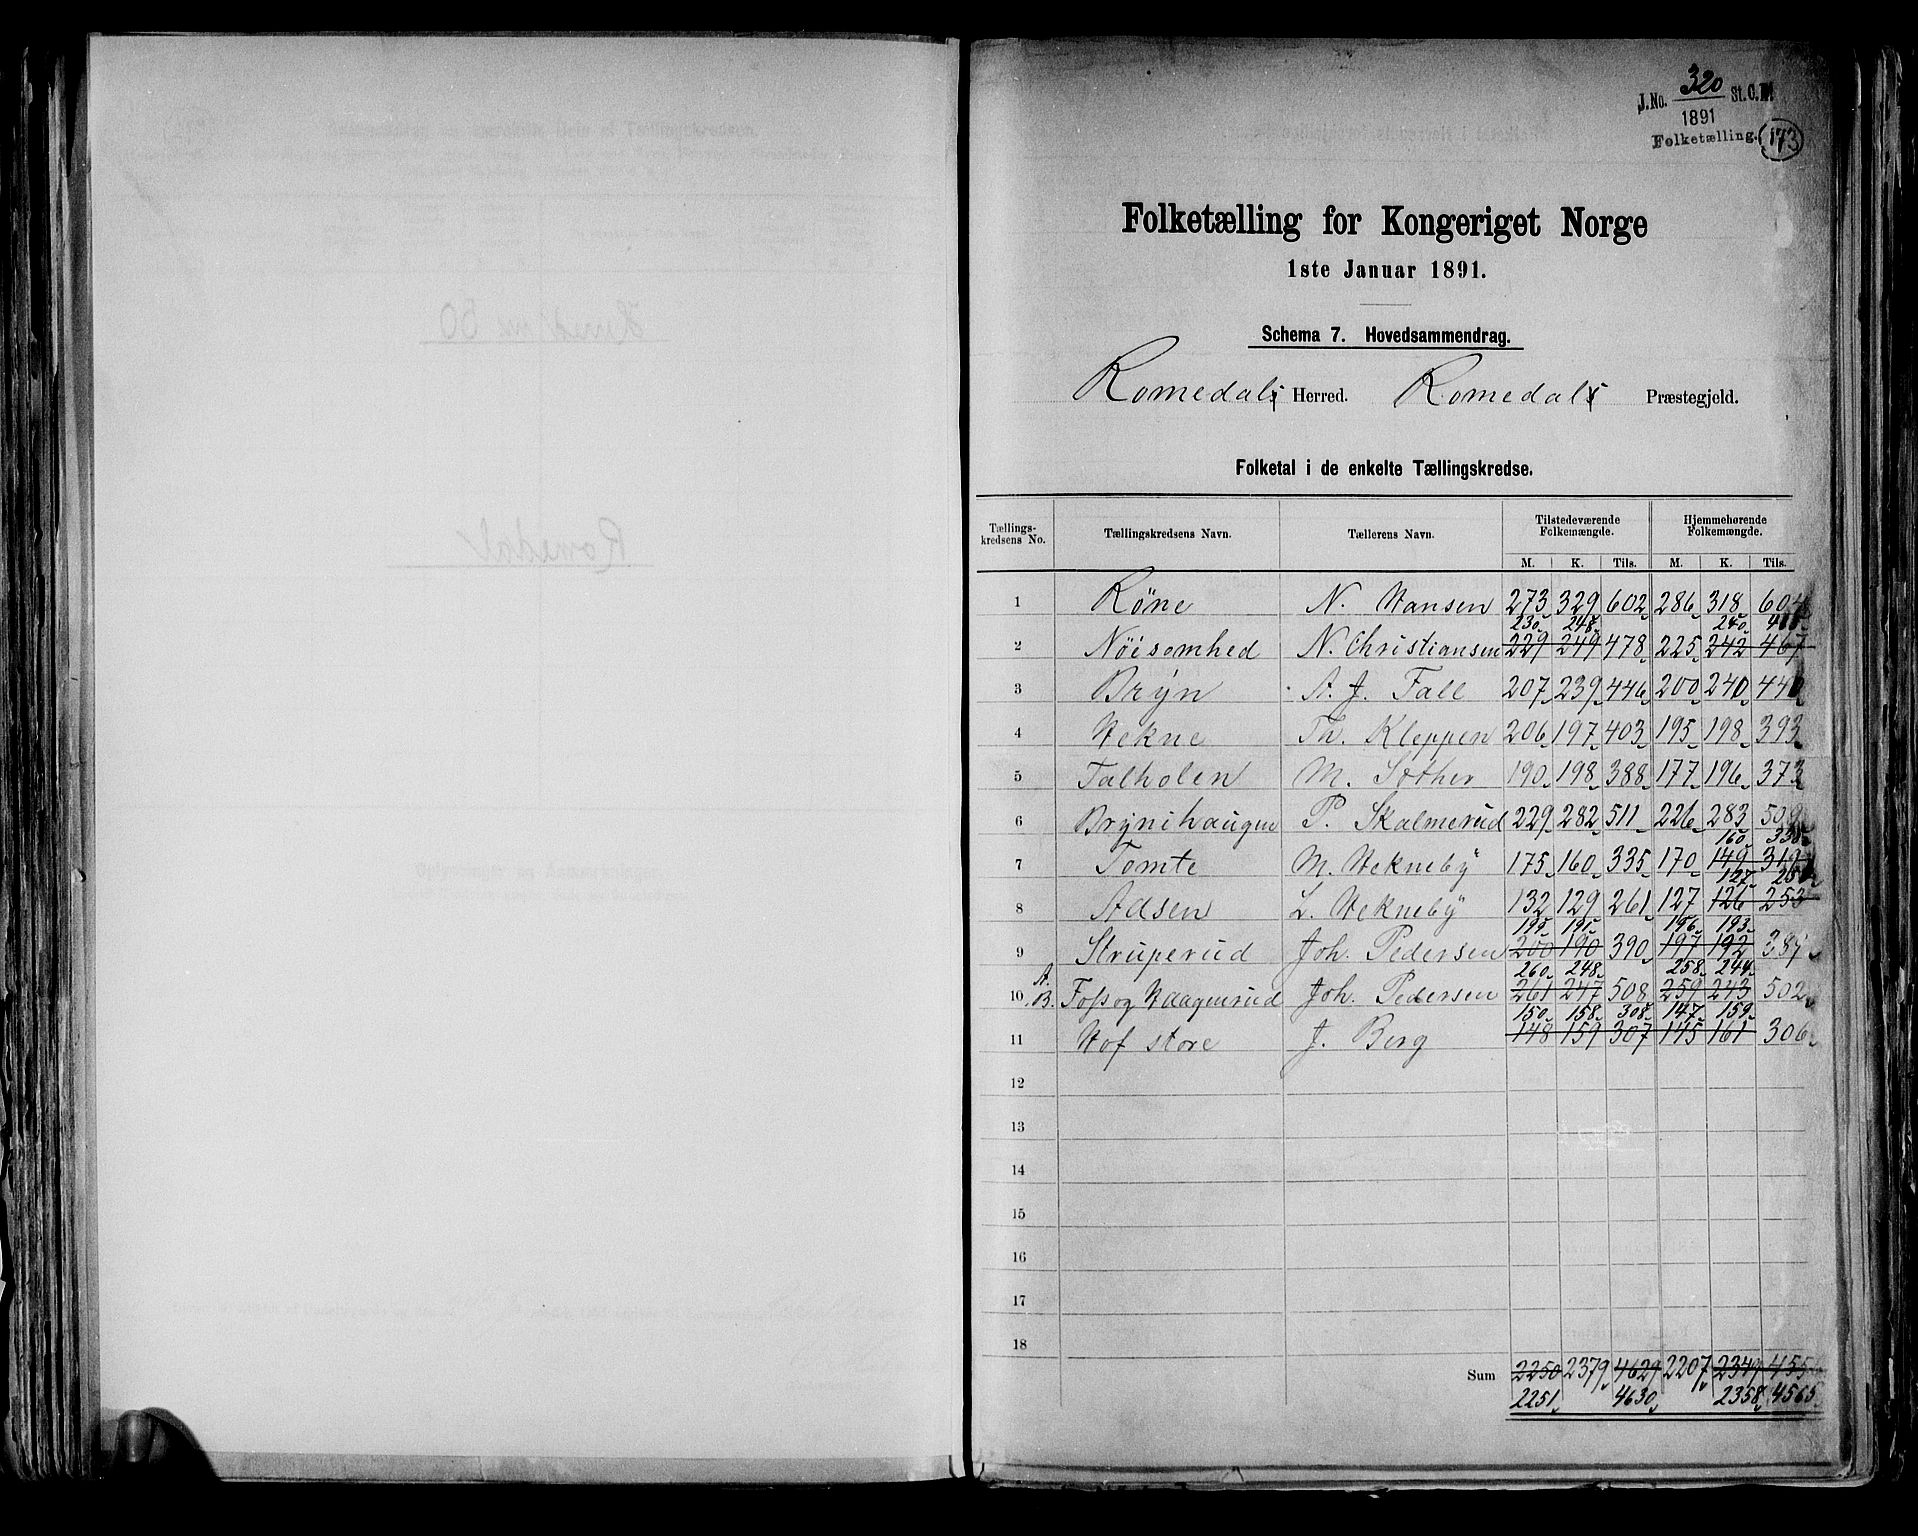 J.No. 320 St. C. B.
1891
Folketælling. 173
Folketælling for Kongeriget Norge
1ste Januar 1891.
Schema 7. Hovedsammendrag.
Romedals Herred. Romedals Præstegjeld.
Folketal i de enkelte Tællingskredse.
Tællings-kredsens No. Tællingskredsens Navn. Tællerens Navn. Tilstedeværende Folkemængde. Hjemmehørende Folkemængde.
M. K. Tils. M. K. Tils.
1 Røne N. Hansen 273 329 602 286 318 604
230 248 240
2 Nöisomhed N. Christiansen 229 249 478 225 242 467
3 Bryn A. J. Fall 207 239 446 200 240 440
4 Hekne Th. Kleppen 206 197 403 195 198 393
5 Falholen M. Sother 190 198 388 177 196 373
6 Brynihaugen P. Skalmerud 229 282 511 226 283 509
160 330
7 Tomte M. Hekneby 175 160 335 170 149 319
127
8 Adsen L. Hekneby 132 129 261 127 126 253
199 191 196 193
9 Struperud Joh. Pedersen 200 190 390 197 192 389
A. 260 248 258 244
10 B. Foss og Haagenrud Joh. Pedersen 261 247 508 259 243 502
150 158 308 147 159
11 Hof store J. Berg 148 159 307 145 161 306
12
13
14
15
16
17
18
Sum 2250 2379 4629 2207 2349 455
2251 4630 2358 4565
Romedal